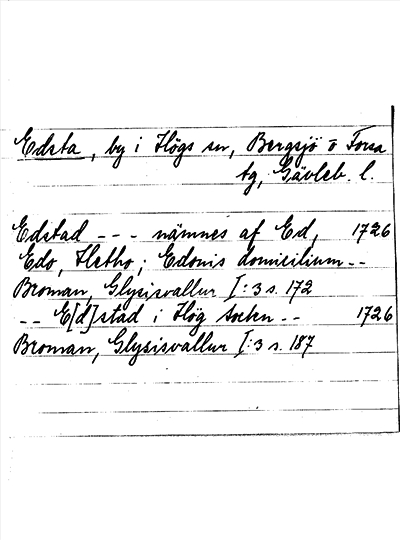 Edsta, by i Högs sn, Bergsjö o Forsa
tg, Gävleb. l.
Edstad --- nämnes af Ed, 1726
Edo, Hetho; Edonis domicilium--
Broman, Glysisvallur I:3 s. 172
-- E[d]stad i Hög socken -- 1726
Broman, Glysisvallur I:3 s. 187